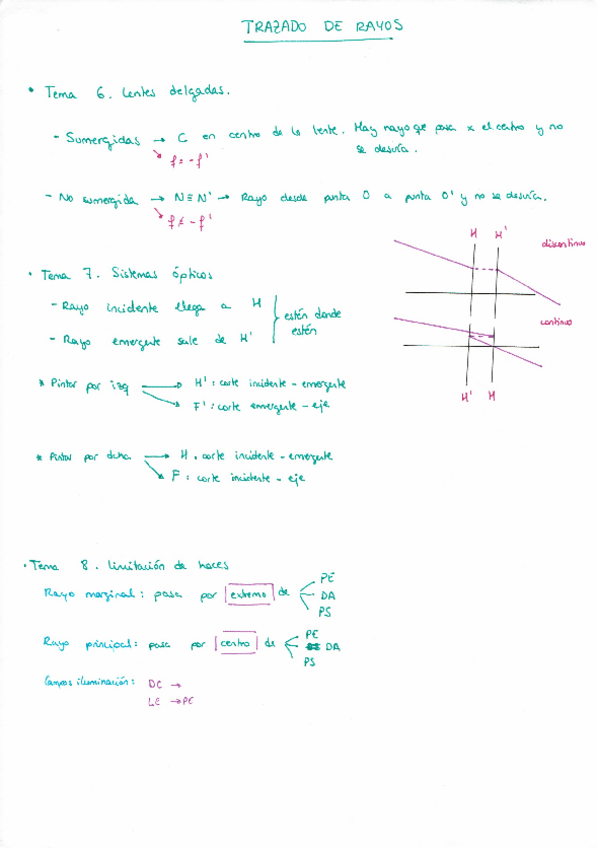 TRAZADO DE RAYOS
• Tema 6. Lentes delgadas.
- Sumergidas → C en centro de la lente. Hay rayo qe pasa x el centro y no
se desvía.
f = -f'
- No sumergida → N ≡ N' → Rayo desde punta O a punta O' y no se desvía.
f ≠ -f'
H H'
discontinuo
• Tema 7. Sistemas ópticos
- Rayo incidente llega a H
- Rayo emergente sale de H'
están donde
estén
continuo
H' H
* Pintar por izq → H' : corte incidente - emergente
F' : corte emergente - eje
* Pintar por dcha → H : corte incidente - emergente
F : corte incidente - eje
• Tema 8. Limitación de haces
Rayo marginal: pasa por extremo de
PE
DA
PS
Rayo principal: pasa por centro de
PE
DA
PS
Campos iluminación: DC →
LE → PE